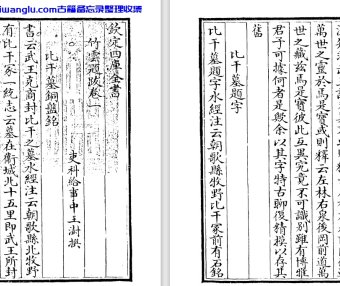 iwanglu.com古籍备忘录整理收集
欽定四庫全書
竹雲題跋卷一
吏科給事中王澍撰
比干墓銅盤銘
書云武王克商封比干之墓水經注云朝歌縣北牧野
有比干冢一統志云墓在衛城北十五里即武王所封
萬世之靈於焉是寶或則釋云左林右泉後岡前道萬
世之藏茲焉是寶彼此互異究竟不可識別雖有博雅
君子可據何者是殷余以其字特古聊復摸以存其
舊
比干墓題字
比干墓題字水經注云朝歌縣牧野比干冢前有石銘